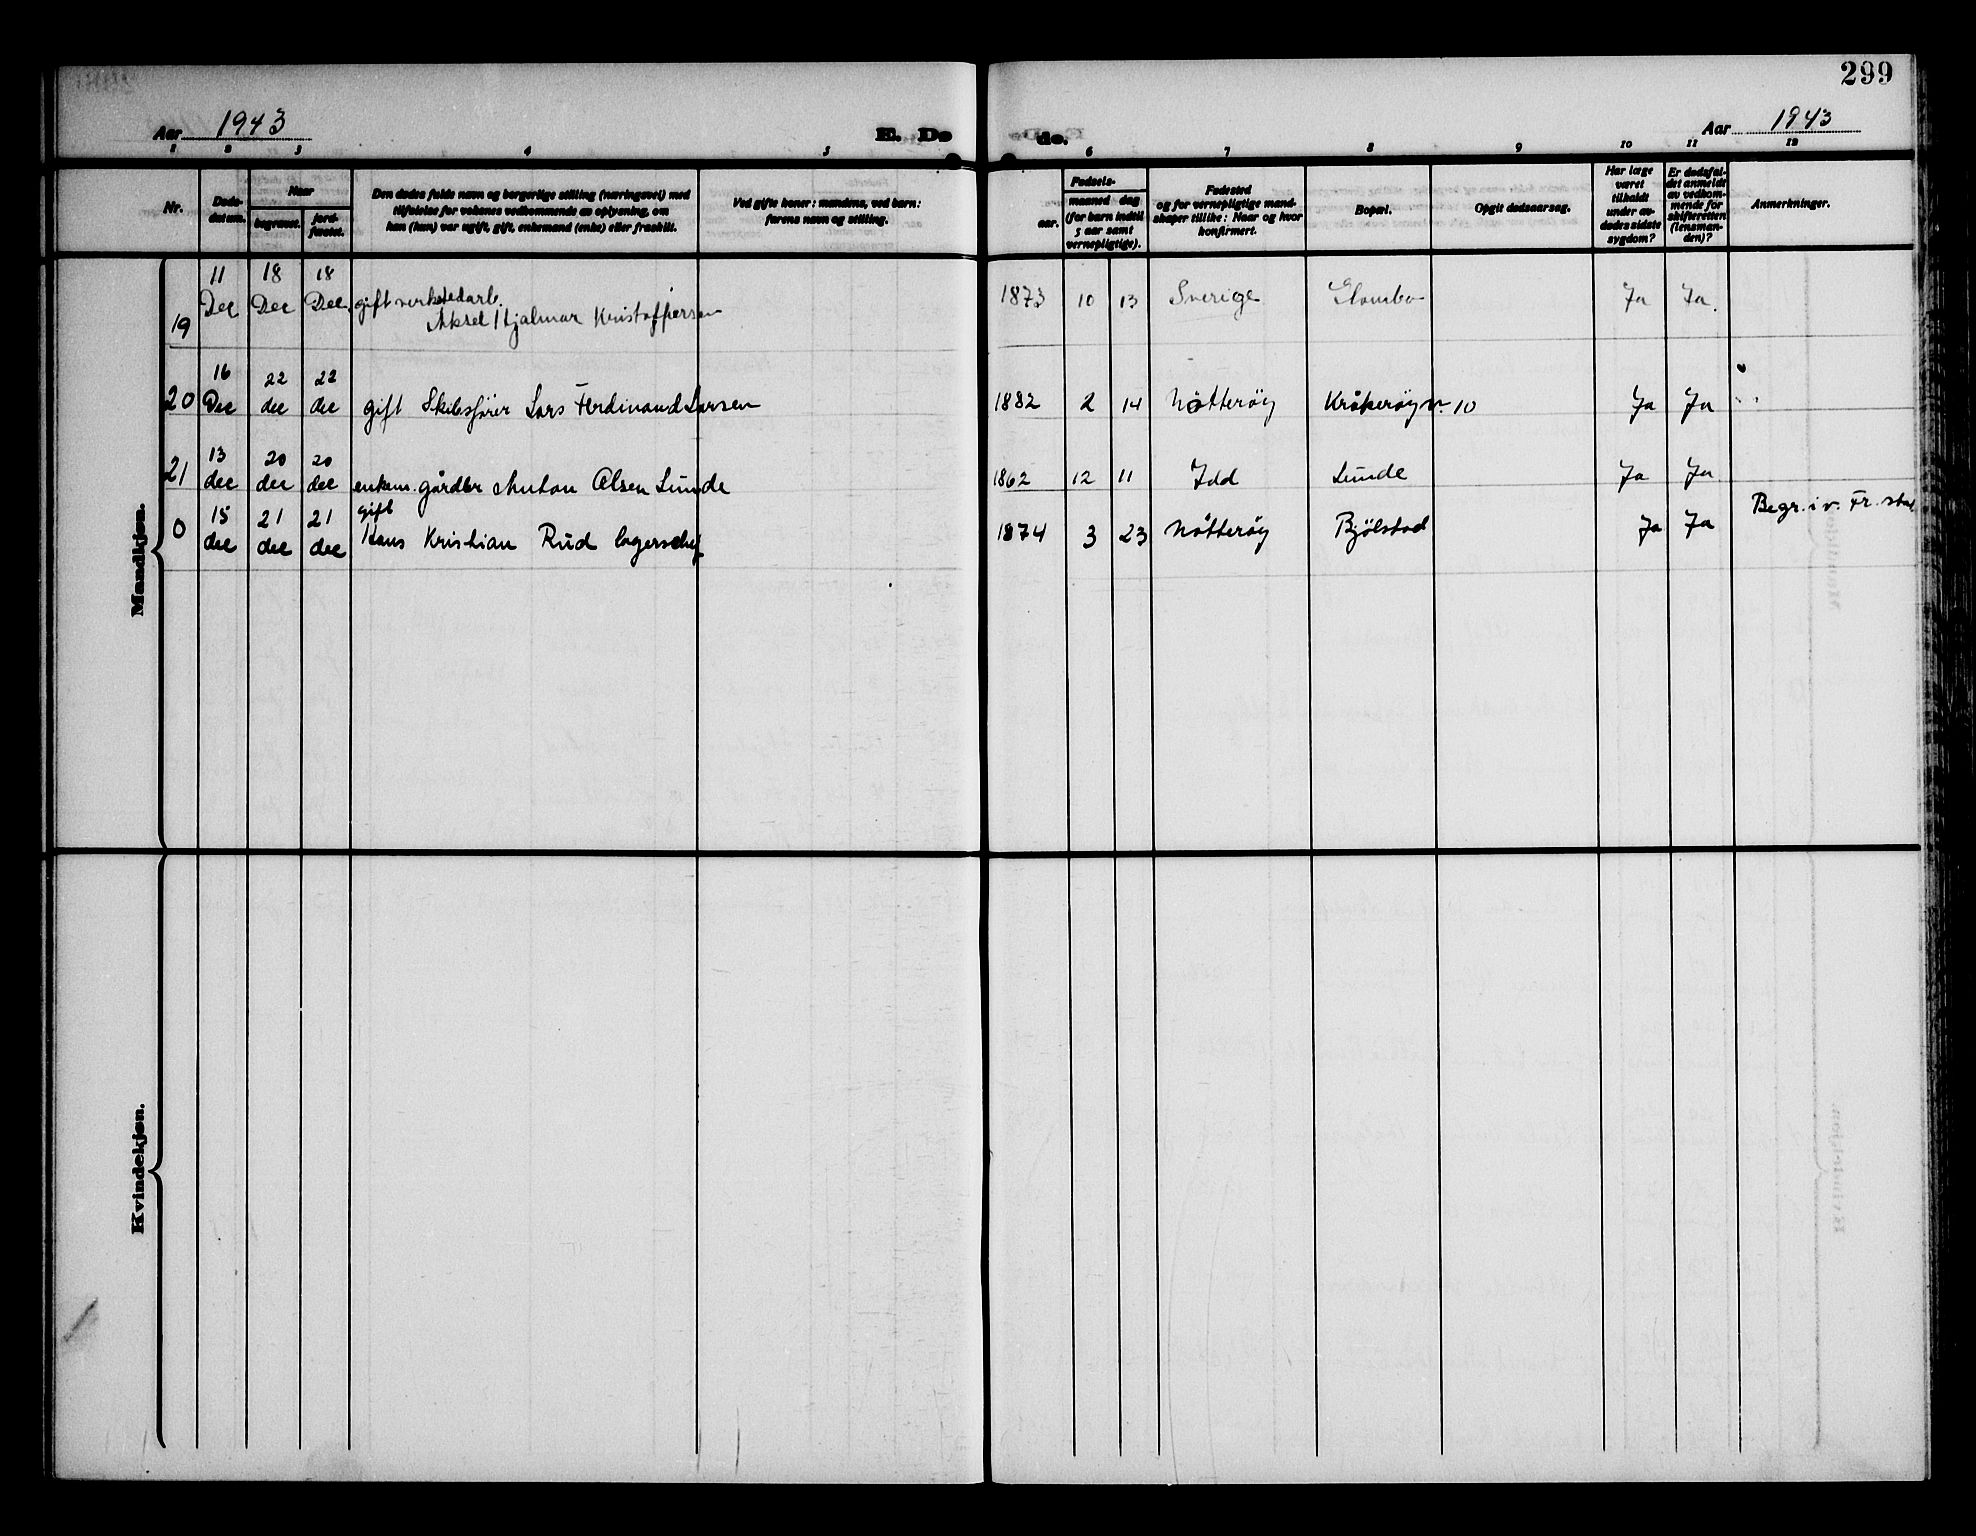 299
Aar 1943
E. Dø
de.
Aar 1943
1 2 3 4 5 6 7 8 9 10 11 12
Nr.
Døds-
datum.
Naar
begravet.
jord-
fæstet.
Den dødes fulde navn og borgerlige stilling (næringsvei) med
tilføielse for voksnes vedkommende av oplysning, om
han (hun) var ugift, gift, enkemand (enke) eller fraskilt.
Ved gifte koner: mandens, ved barn:
farens navn og stilling.
Fødsels-
aar.
maaned dag
(for barn indtil
5 aar samt
vernepligtige).
Fødested
og for vernepligtige mand-
skaper tillike: Naar og hvor
konfirmert.
Bopæl.
Opgit dødsaarsag.
Har læge
været
tilkaldt
under av-
dødes sidste
sygdom?
Er dødsfal-
det anmeldt
av vedkom-
mende for
skifteretten
(lensman-
den)?
Anmerkninger.
Mandkjøn.
19 11 Dec 18 Dec 18 Dec. gift verkstedarb.
Aksel Hjalmar Kristoffersen 1873 10 13 Sverige Glombo Ja Ja.
20 16 Dec 22 dec 22 dec gift Skibsfører Lars Ferdinand Larsen 1882 2 14 Nøtterøy Kråkerøyv. 10 Ja Ja
21 13 dec 20 dec 20 dec enkem. gårdbr Anton Olsen Lunde 1862 12 11 Idd Lunde Ja Ja
gift
0 15 dec 21 dec 21 dec Hans Kristian Rud lagerschef 1874 3 23 Nøtterøy Bjölstad Ja Ja Begr. i v. Fr. stad
Kvindekjøn.